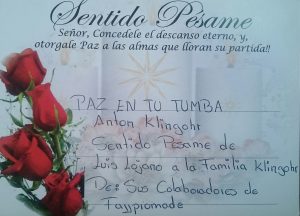 Sentido Pésame
Señor, Concedele el descanso eterno, y,
otorgale Paz a las almas que lloran su partida!!
PAZ EN TU TUMBA
Anton Klingohr
Sentido Pésame de
Luis Lojano a la Familia Klingohr
De: Sus Colaboradores de
Fajjpromade